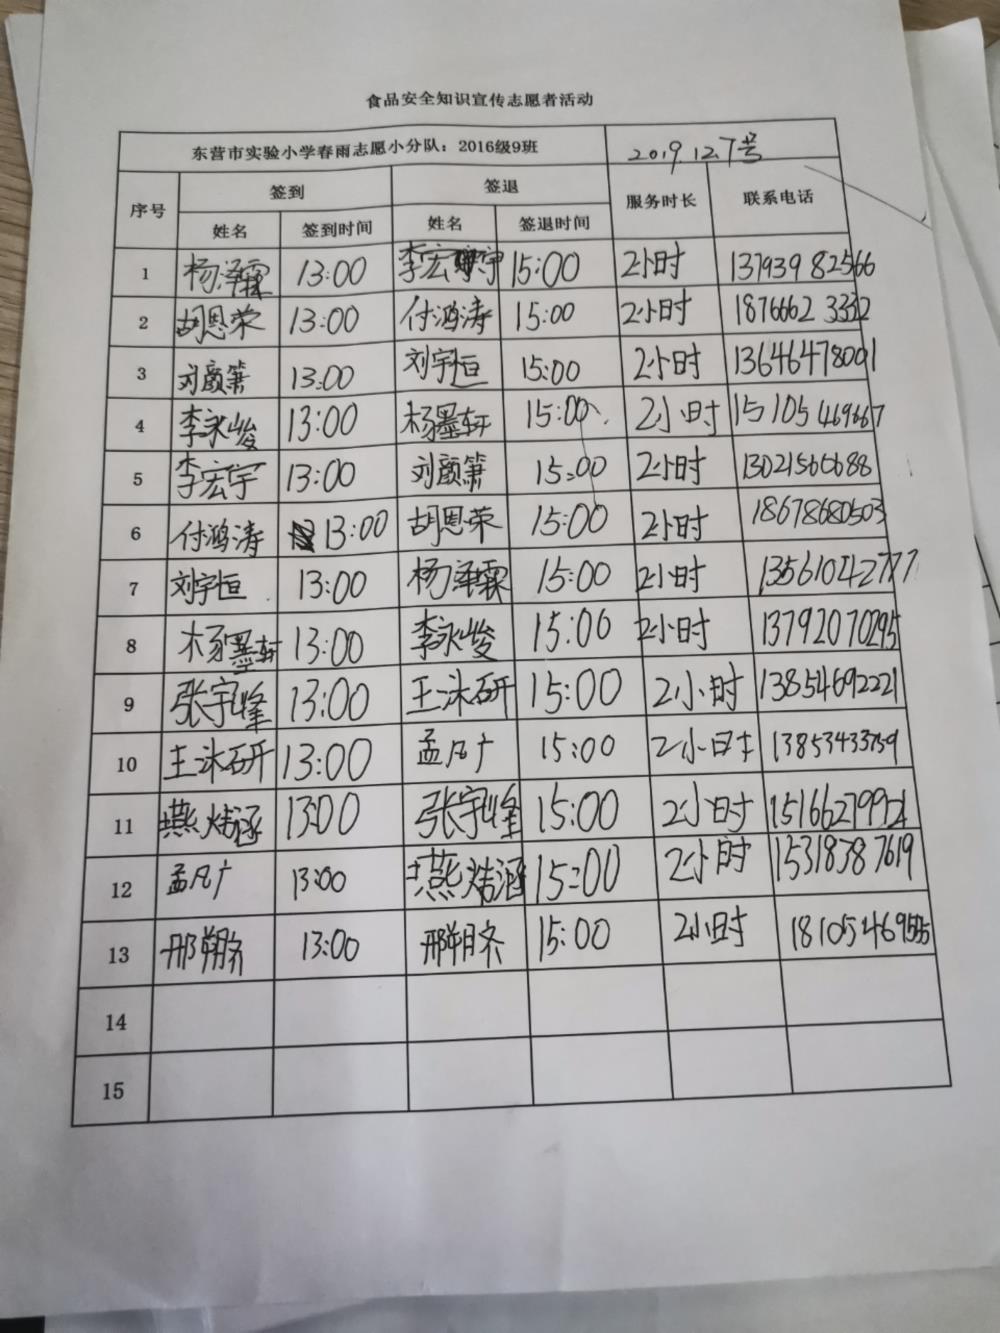 食品安全知识宣传志愿者活动
东营市实验小学春雨志愿小分队：2016级9班 2019.12.7号
序号 签到 签退 服务时长 联系电话
姓名 签到时间 姓名 签退时间
1 杨泽霖 13:00 李宏宇 15:00 2小时 13793982566
2 胡恩荣 13:00 付鸿涛 15:00 2小时 18766623332
3 刘颜箫 13:00 刘宇恒 15:00 2小时 13646478001
4 李永峻 13:00 杨墨轩 15:00 2小时 15105469667
5 李宏宇 13:00 刘颜箫 15:00 2小时 13021566688
6 付鸿涛 13:00 胡恩荣 15:00 2小时 18678680503
7 刘宇恒 13:00 杨泽霖 15:00 2小时 13561042777
8 杨墨轩 13:00 李永峻 15:00 2小时 13792070295
9 张宇峰 13:00 王沐研 15:00 2小时 13854692221
10 王沐研 13:00 孟凡广 15:00 2小时 13853433759
11 燕焅涵 13:00 张宇峰 15:00 2小时 15166279921
12 孟凡广 13:00 燕焅涵 15:00 2小时 15318787619
13 邢朔齐 13:00 邢朔齐 15:00 2小时 18105469555
14
15